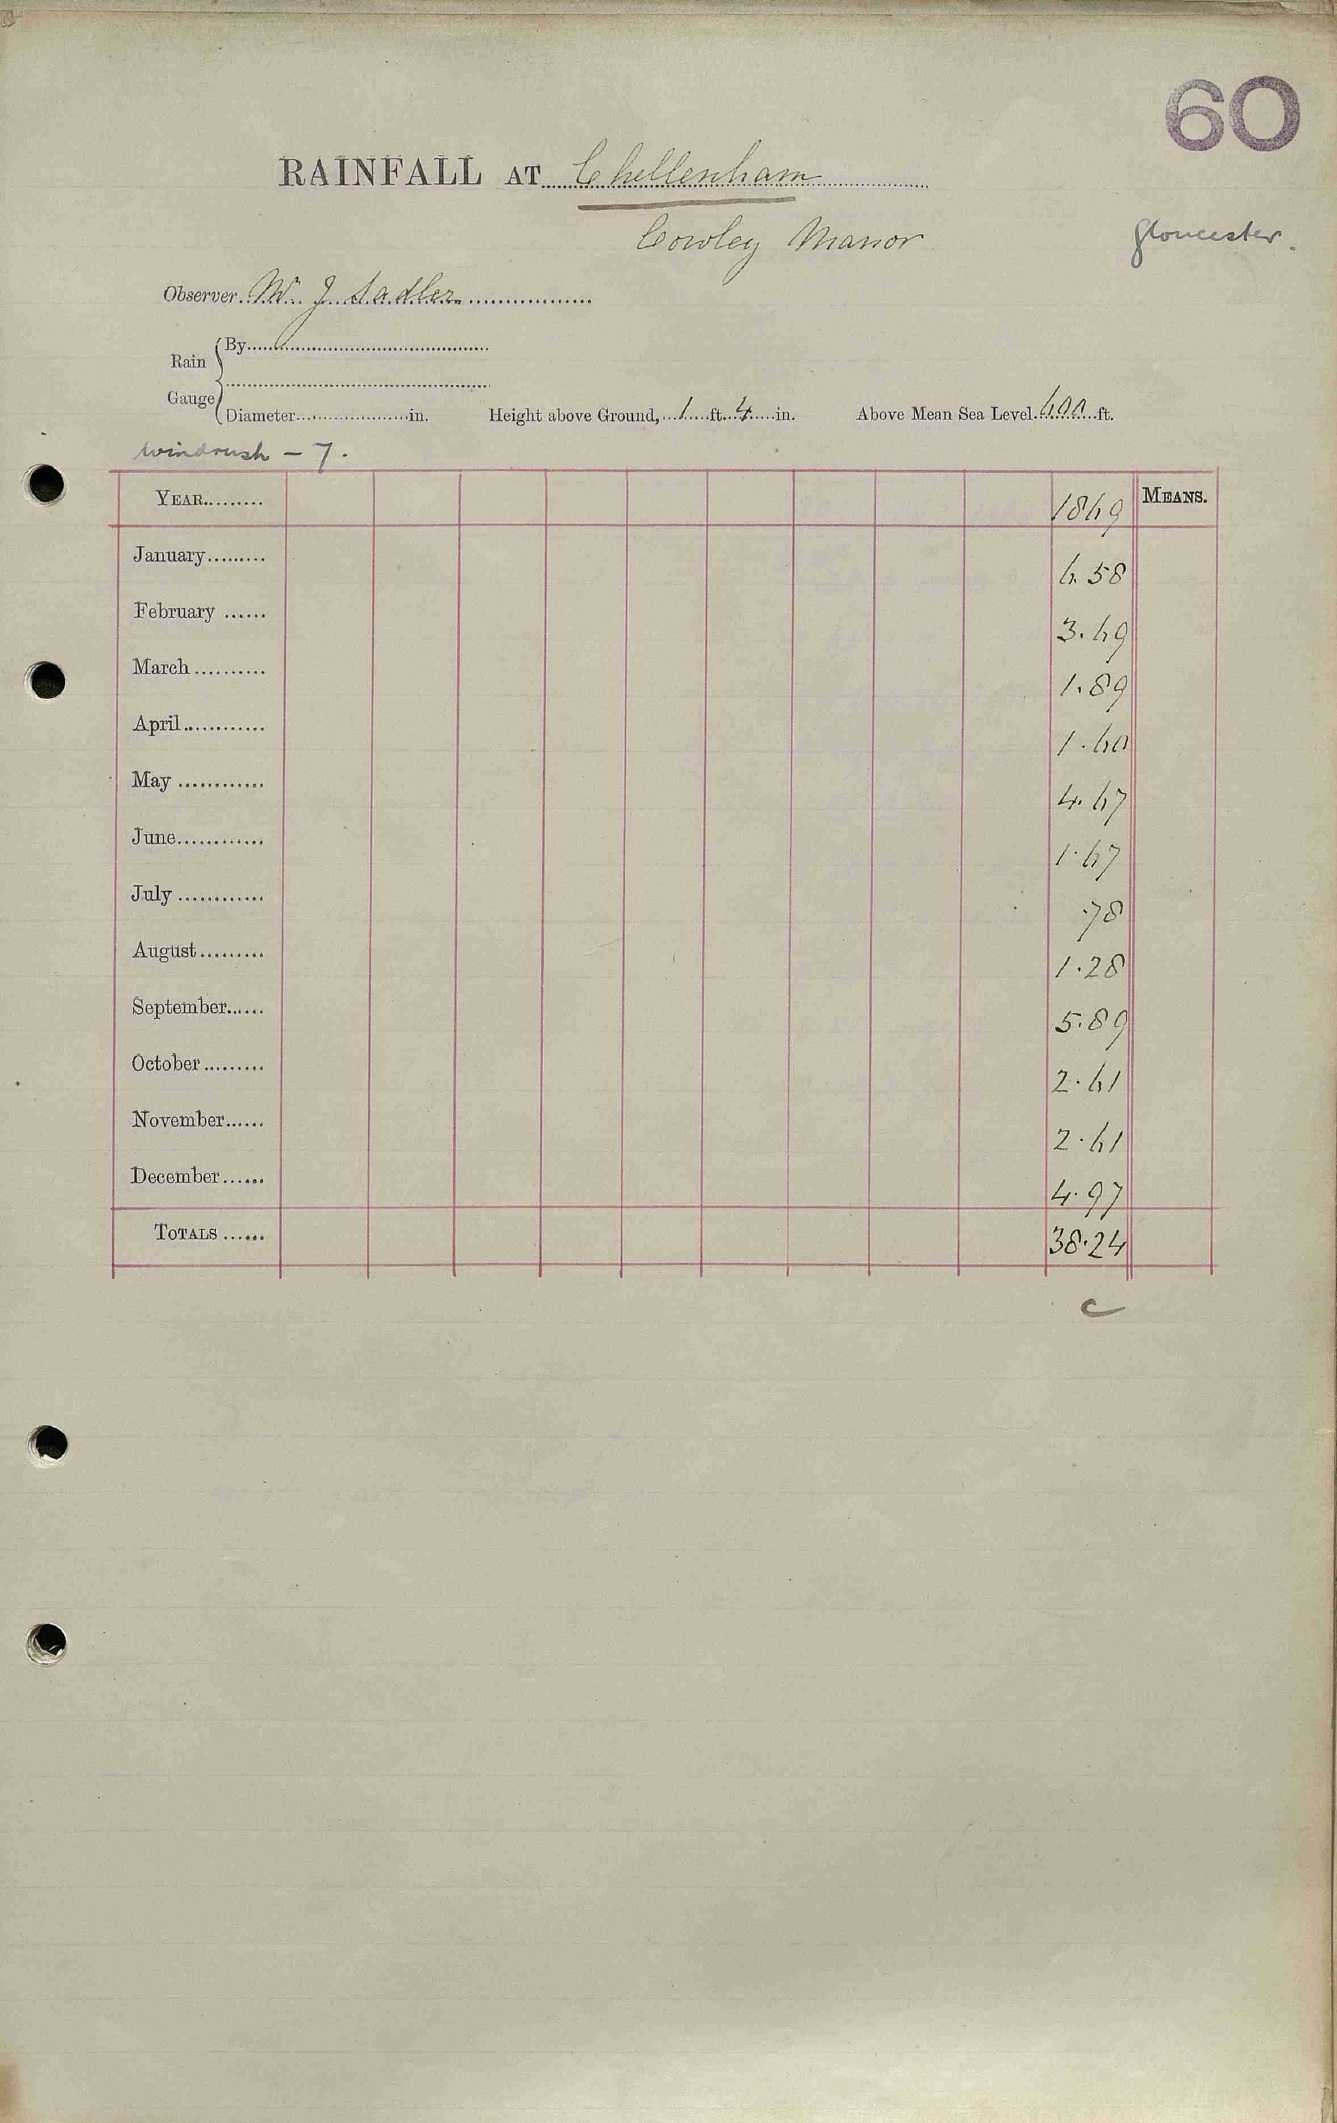 60
RAINFALL AT Cheltenham
Cowley Manor
Gloucester.
Observer W. J Sadler
Rain Gauge
By
Diameter in. Height above Ground, 1 ft. 4 in. Above Mean Sea Level 600 ft.
Windrush - 7.
YEAR 1869 MEANS.
January 6.58
February 3.69
March 1.89
April 1.60
May 4.67
June 1.67
July .78
August 1.28
September 5.89
October 2.61
November 2.61
December 4.97
TOTALS 38.24
C